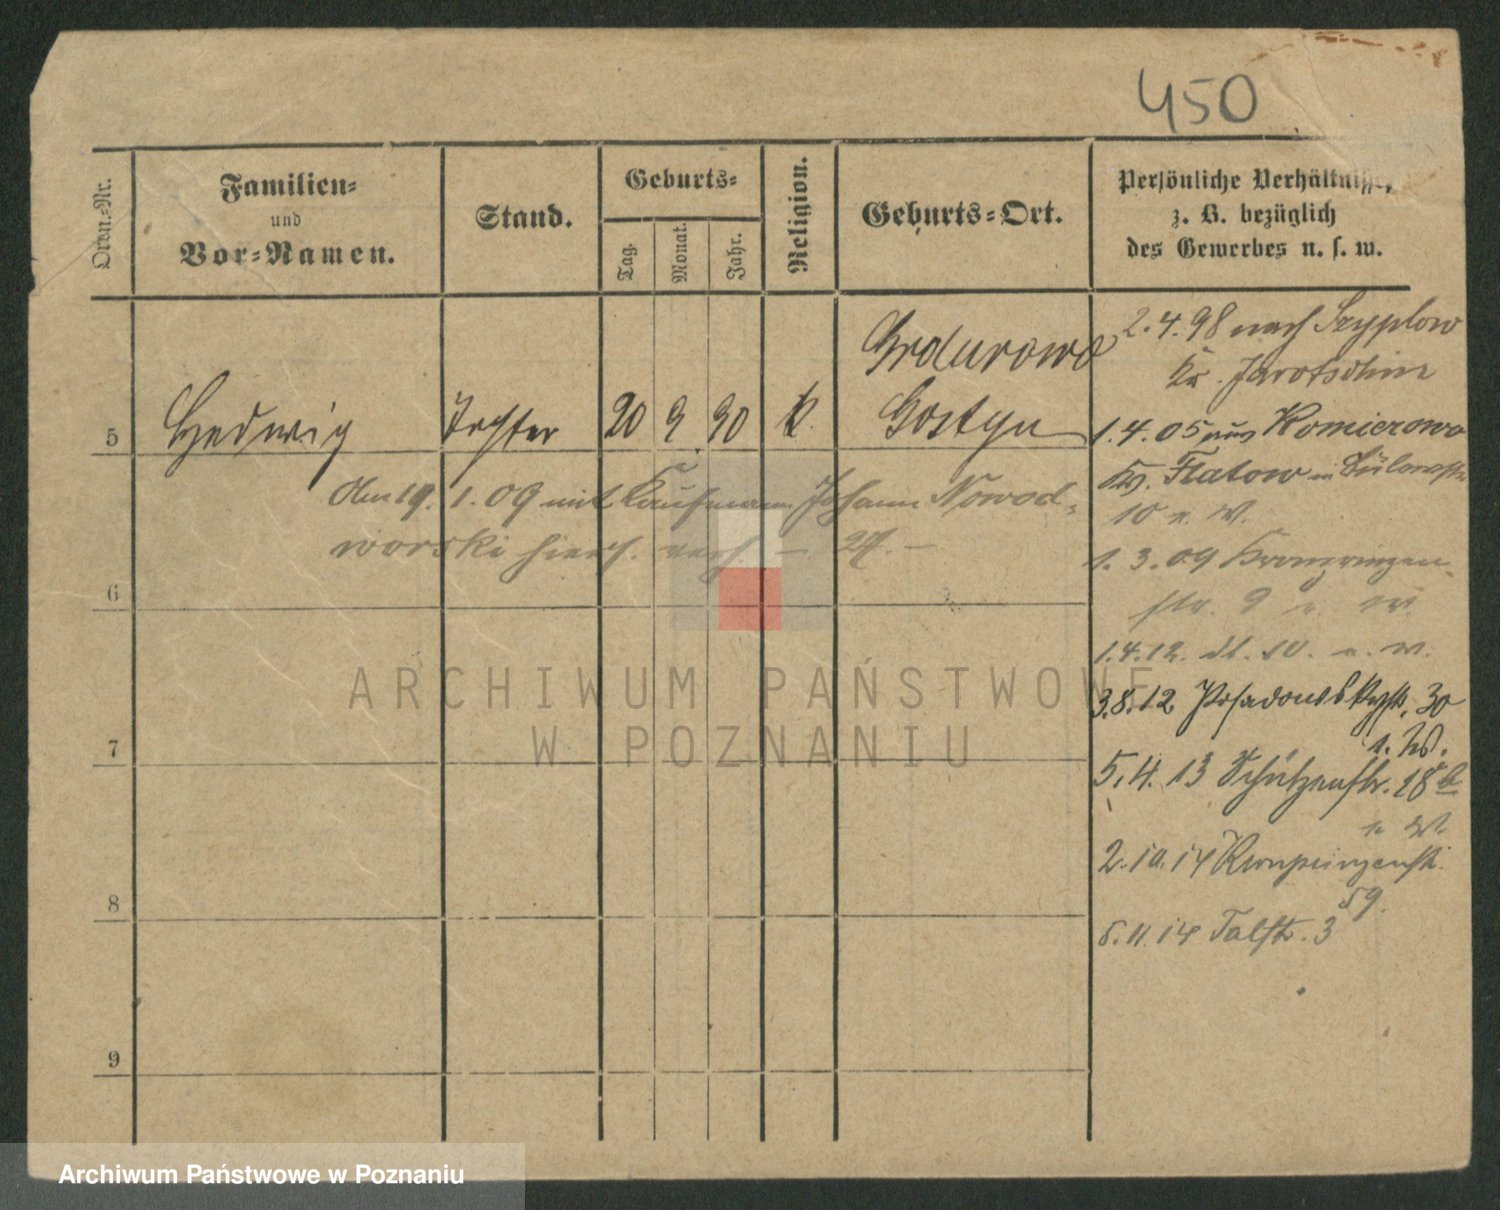 450
Ordn.-Nr.
Familien-
und
Vor-Namen.
Stand.
Geburts-
Tag.
Monat.
Jahr.
Religion.
Geburts-Ort.
Persönliche Verhältnisse,
z. B. bezüglich
des Gewerbes u. s. w.
2.4.98 nach Szyplow
Kr. Jarotschin
Grodurowo
5 Hedwig Tochter 20 9 90 k. Gostyn
1.4.05 aus Komierowo
Kr. Flatow in Bülowstr.
10 v. W.
Am 19. 1.09 mit Kaufmann Johann Nowod-
worski hiers. verh. — 27. —
1.3.09 Kronprinzen-
str. 9 v. W.
6
1.4.12. dt. 10. v. W.
3.8.12 Posadowskystr. 30
v. W.
7
5.4.13 Schützenstr. 28 b
v W.
2.10.14 Kronprinzenstr.
59.
8
5.11.14 Talstr. 3
9
ARCHIWUM PAŃSTWOWE
W POZNANIU
Archiwum Państwowe w Poznaniu